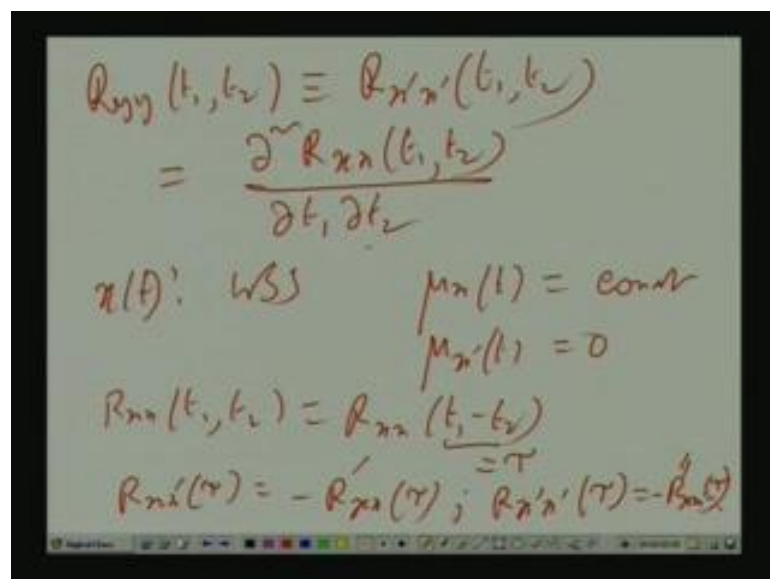 Ryy (t₁, t₂) ≡ Rx'x' (t₁, t₂)
= ∂² Rxx (t₁, t₂) / ∂t₁ ∂t₂
x(t): WSS μx(t) = const
μx'(t) = 0
Rxx (t₁, t₂) = Rxx (t₁ - t₂)
= τ
Rxx'(τ) = - R'xx(τ) ; Rx'x'(τ) = - R''xx(τ)